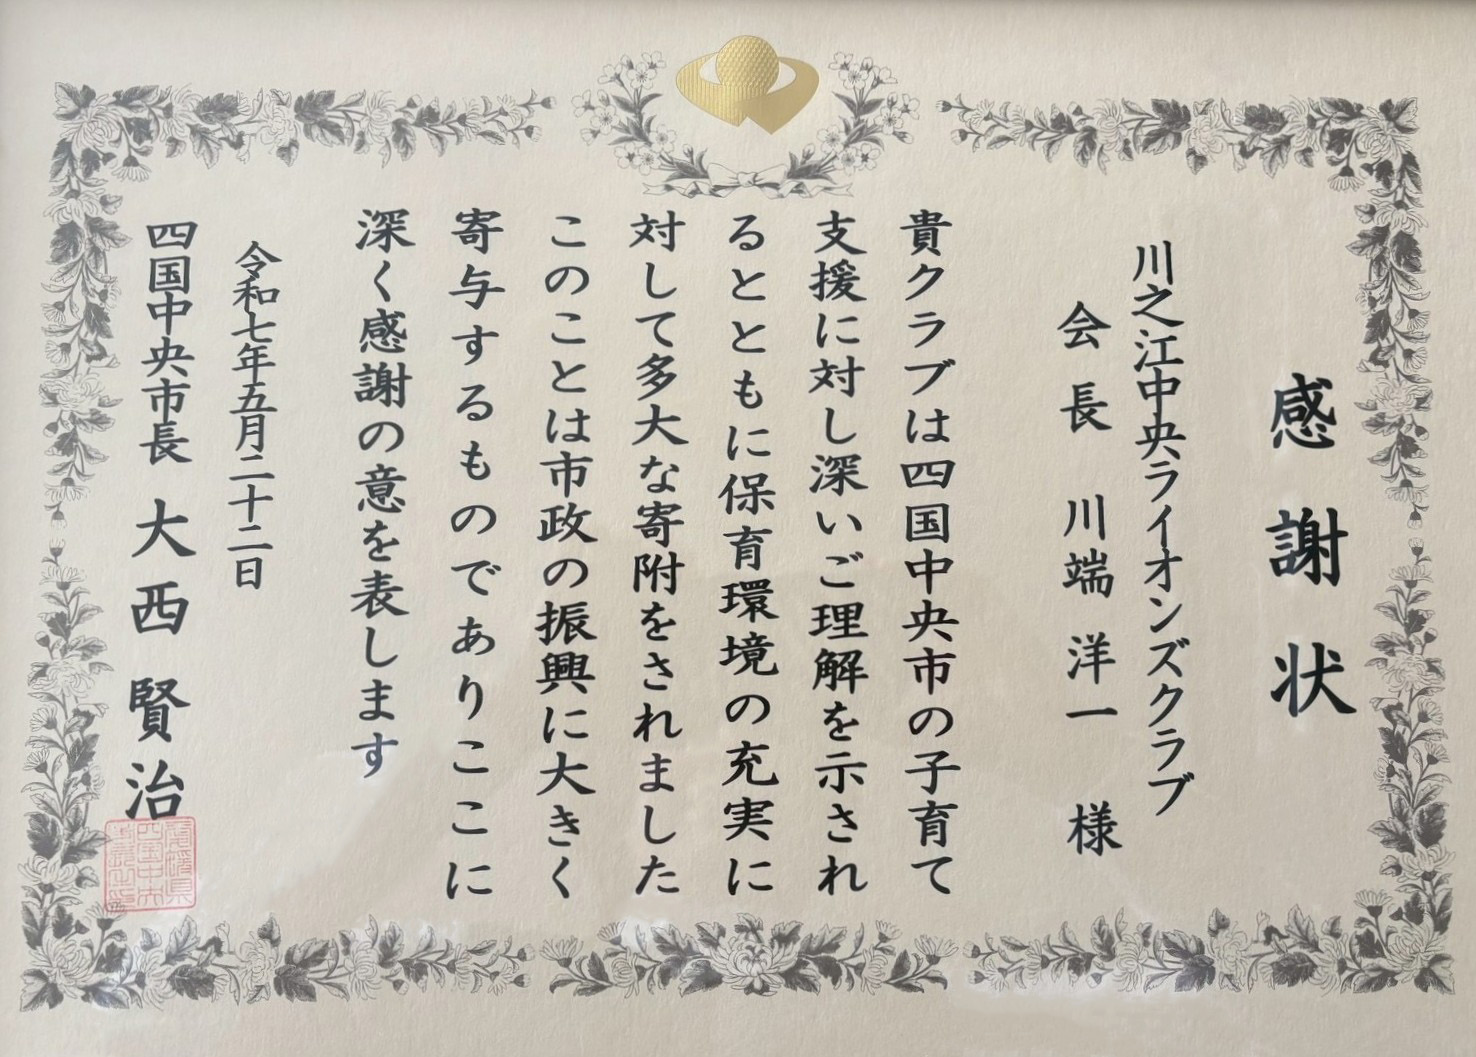 感謝状
川之江中央ライオンズクラブ
会長 川端 洋一 様
貴クラブは四国中央市の子育て
支援に対し深いご理解を示され
るとともに保育環境の充実に
対して多大な寄附をされました
このことは市政の振興に大きく
寄与するものでありここに
深く感謝の意を表します
令和七年五月二十二日
四国中央市長 大西賢治
愛媛県
四国中央